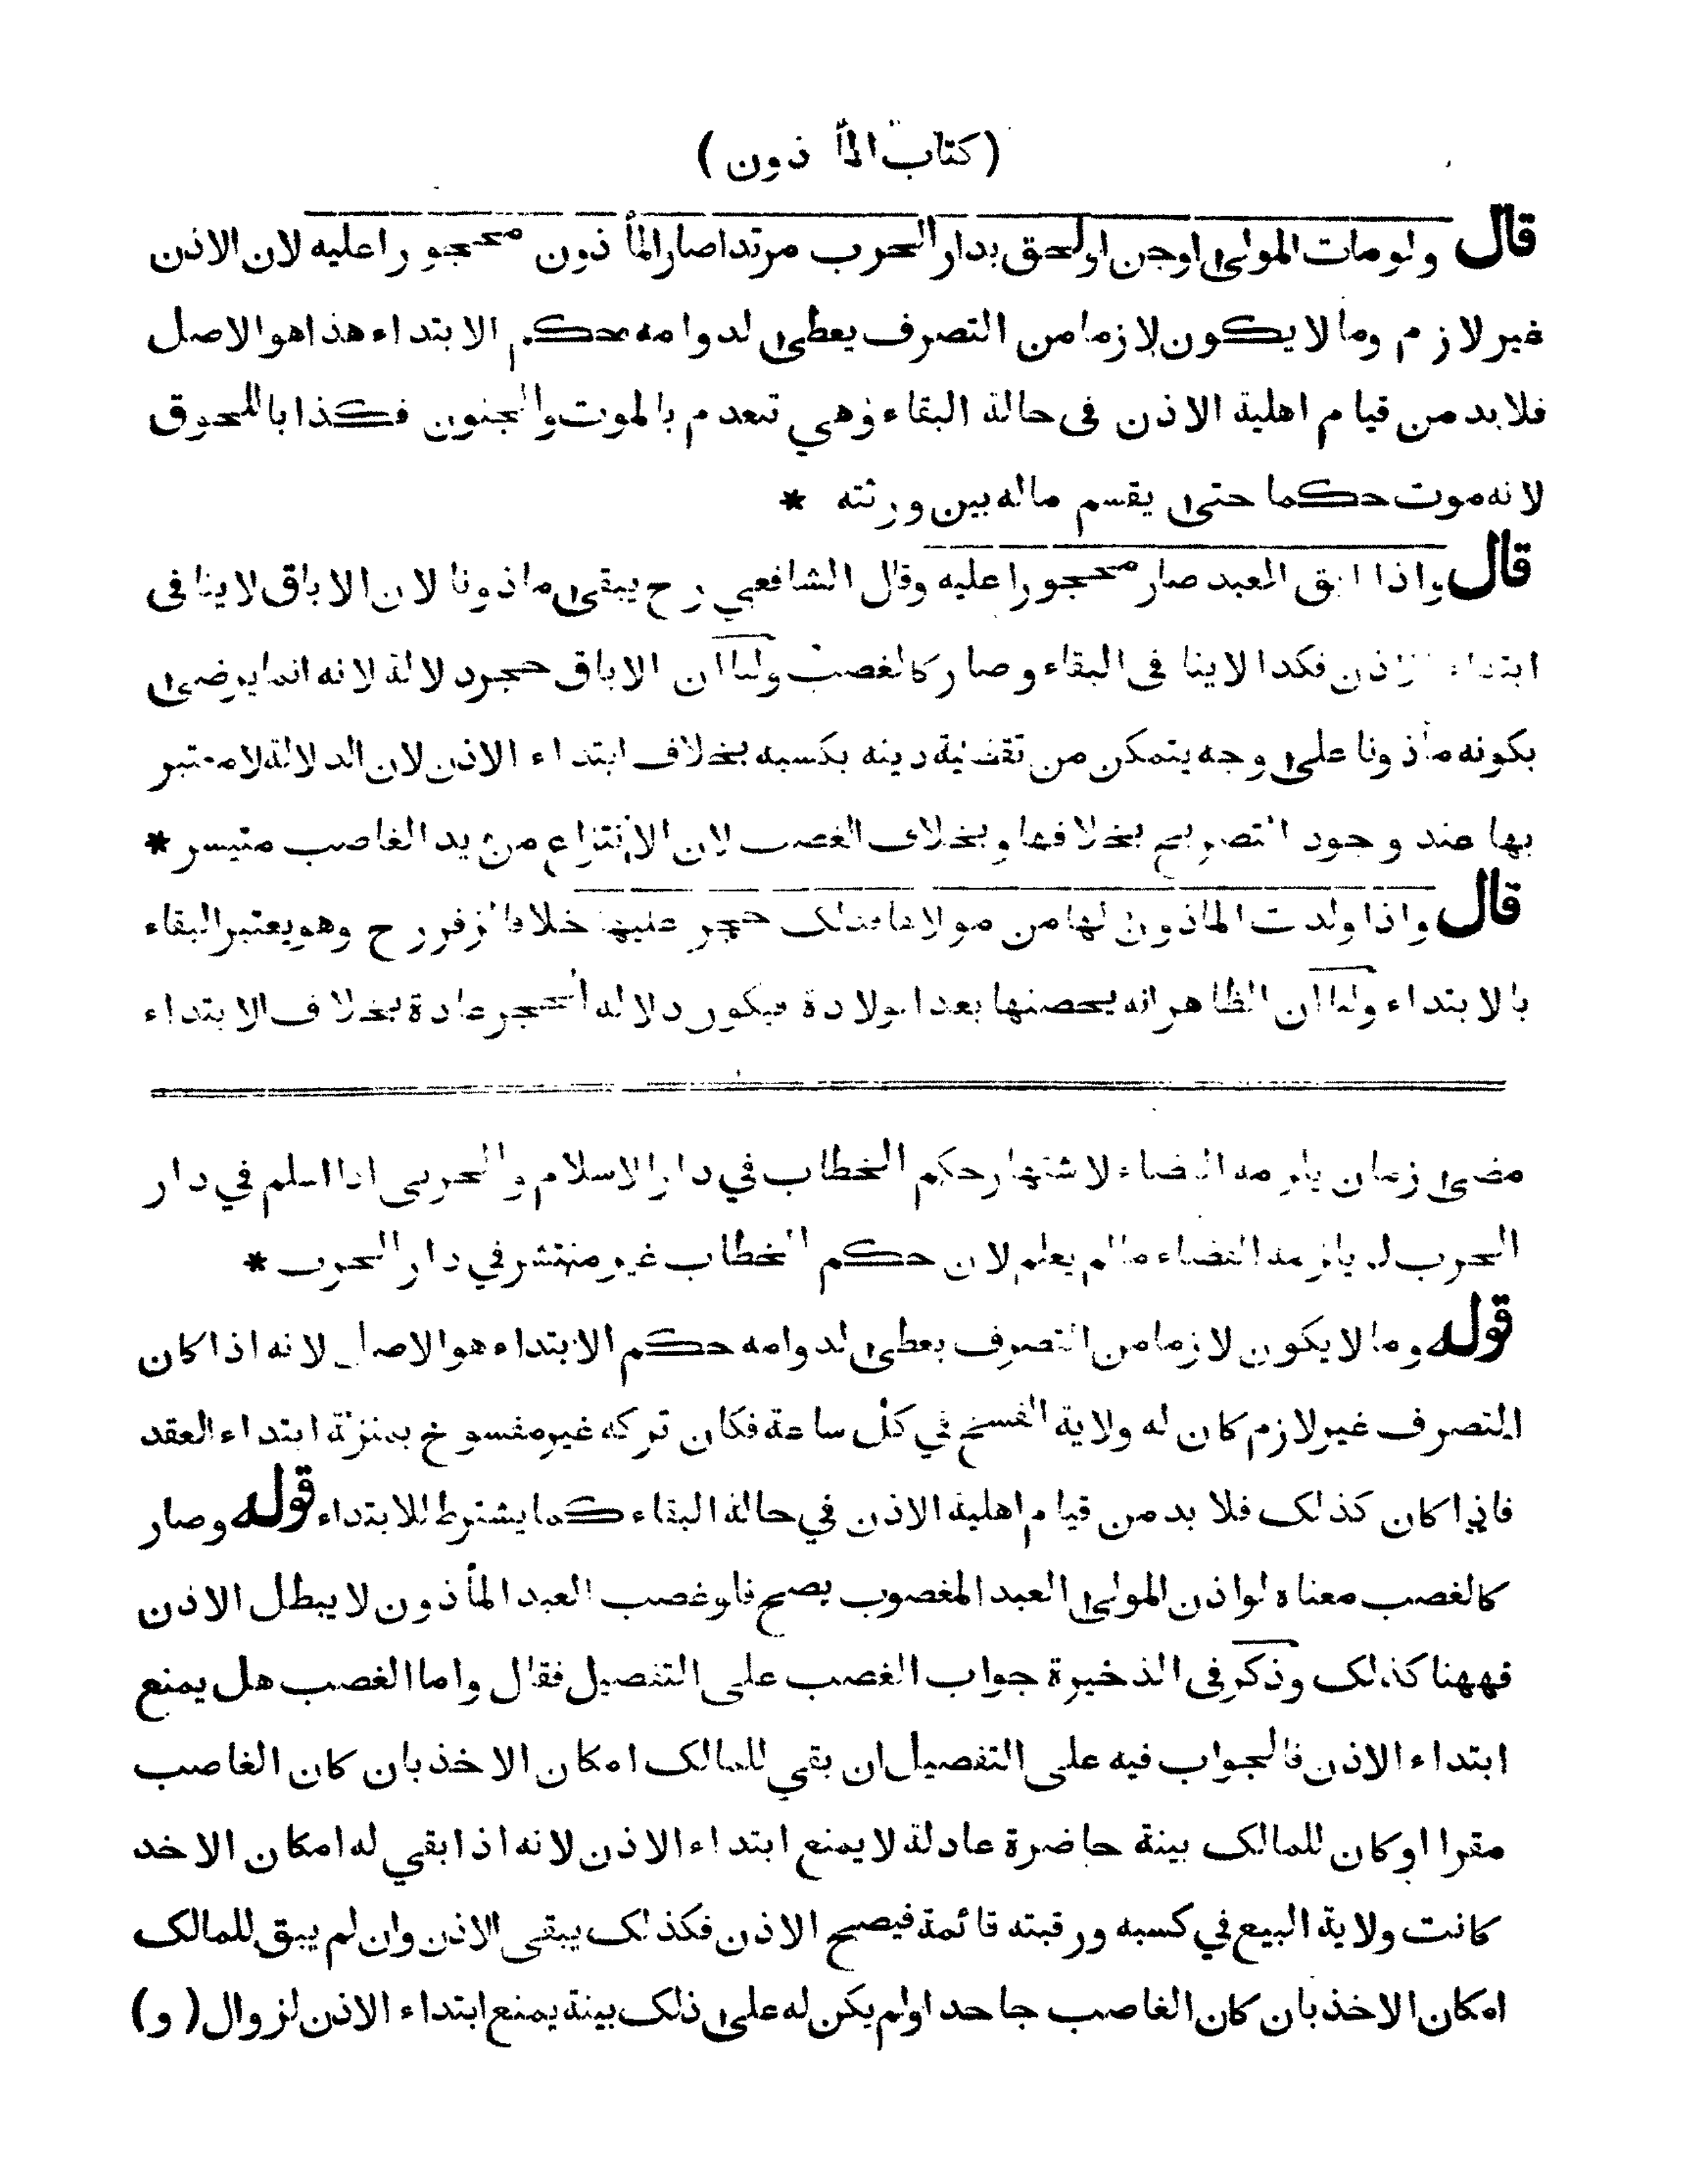 (كتاب المأ ذون)
قال ولومات المولى اوجن اولحق بدار الحرب مرتدا صار المأ ذون محجورا عليه لان الاذن
غير لازم وما لا يكون لازما من التصرف يعطى لدوامه حكم الابتداء هذا هو الاصل
فلا بد من قيام اهلية الاذن فى حالة البقاء وهي تنعدم بالموت والجنون فكذا باللحوق
لانه موت حكما حتى يقسم ماله بين ورثته *
قال واذا ابق العبد صار محجورا عليه وقال الشافعي رح يبقى ماذونا لان الاباق لا ينافى
ابتداء الاذن فكذا لا ينا فى البقاء وصار كالغصب ولنا ان الاباق حجر دلالة لانه انما يرضى
بكونه مأذونا على وجه يتمكن من تقضية دينه بكسبه بخلاف ابتداء الاذن لان الدلالة لا معتبر
بها عند وجود التصريح بخلافها وبخلاف الغصب لان الانتزاع من يد الغاصب متيسر *
قال واذا ولدت الماذون لها من مولاها فذلك حجر عليها خلافا لزفر رح وهو يعتبر البقاء
بالابتداء ولنا ان الظاهر انه يحصنها بعد الولادة فيكون دلالة الحجر عادة بخلاف الابتداء
مضى زمان يلزمه القضاء لاشتهار حكم الخطاب في دار الاسلام والحربى اذا اسلم في دار
الحرب لم يلزمه القضاء مالم يعلم لان حكم الخطاب غير منتشر في دار الحرب *
قوله وما لا يكون لازما من التصرف يعطى لدوامه حكم الابتداء هو الاصل لانه اذا كان
التصرف غير لازم كان له ولاية الفسخ في كل ساعة فكان تركه غير مفسوخ بمنزلة ابتداء العقد
فاذا كان كذلك فلا بد من قيام اهلية الاذن في حالة البقاء كما يشترط للابتداء قوله وصار
كالغصب معناه لو اذن المولى العبد المغصوب يصح فلو غصب العبد المأذون لا يبطل الاذن
فههنا كذلك وذكر فى الذخيرة جواب الغصب على التفصيل فقال واما الغصب هل يمنع
ابتداء الاذن فالجواب فيه على التفصيل ان بقي للمالك امكان الاخذ بان كان الغاصب
مقرا او كان للمالك بينة حاضرة عادلة لا يمنع ابتداء الاذن لانه اذا بقي له امكان الاخد
كانت ولاية البيع في كسبه ورقبته قائمة فيصح الاذن فكذلك يبقى الاذن وان لم يبق للمالك
امكان الاخذ بان كان الغاصب جاحدا ولم يكن له على ذلك بينة يمنع ابتداء الاذن لزوال (و)